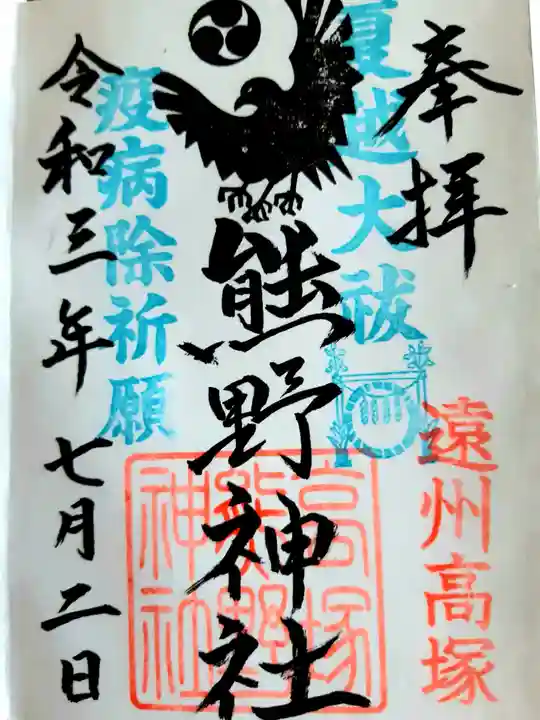 奉拝
夏越大祓
遠州高塚
熊野神社
高塚
熊野
神社
疫病除祈願
令和三年 七月二日